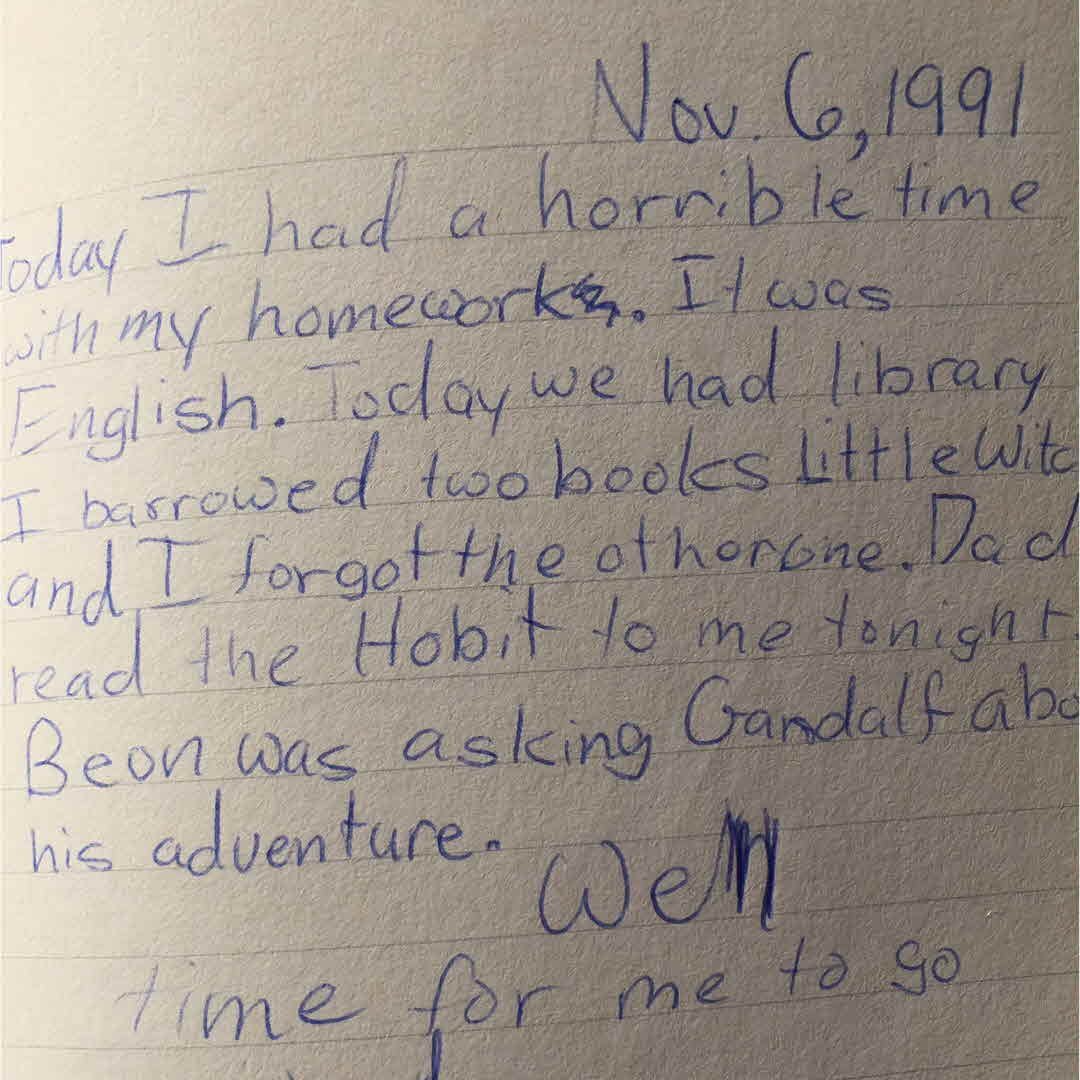 Nov. 6, 1991
Today I had a horrible time
with my homework. It was
English. Today we had library
I barrowed two books Little Witc
and I forgot the other one. Dad
read the Hobit to me tonight.
Beon was asking Gandalf abo
his adventure.
Well
time for me to go